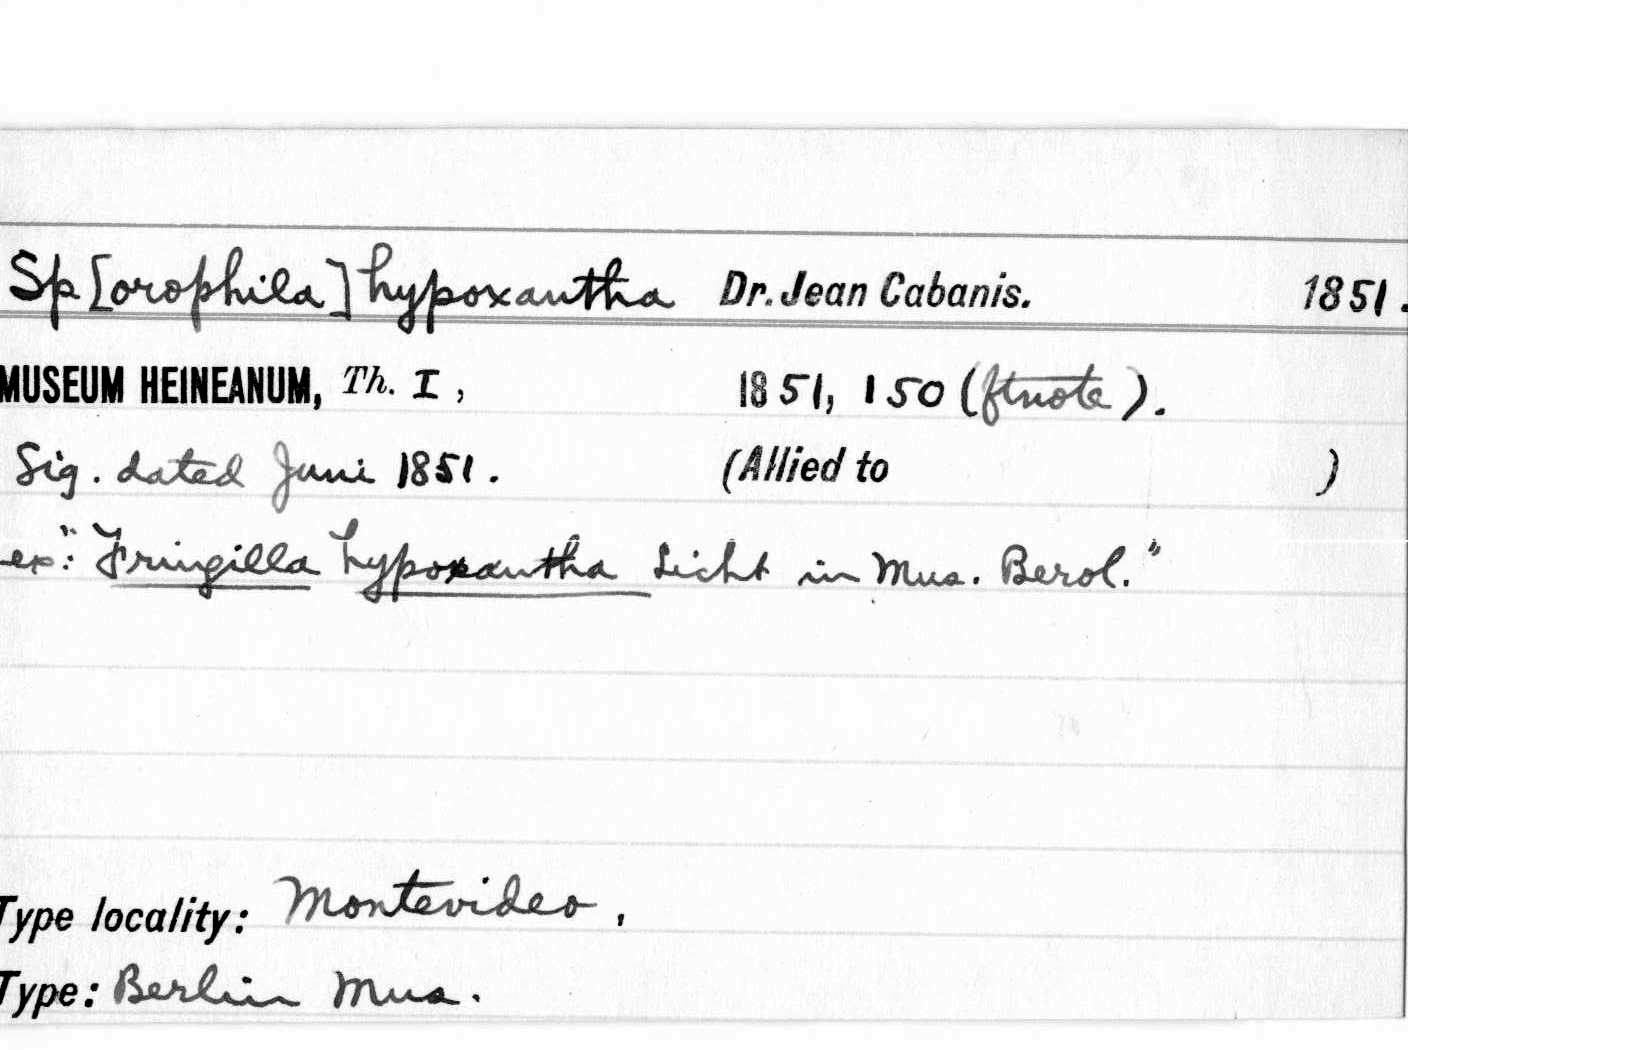 Sp[orophila] hypoxantha Dr. Jean Cabanis. 1851.
MUSEUM HEINEANUM, Th. I, 1851, 150 (ftnote).
Sig. dated Juni 1851. (Allied to )
ex": Fringilla hypoxantha Licht in Mus. Berol."
Type locality: Montevideo,
Type: Berlin Mus.